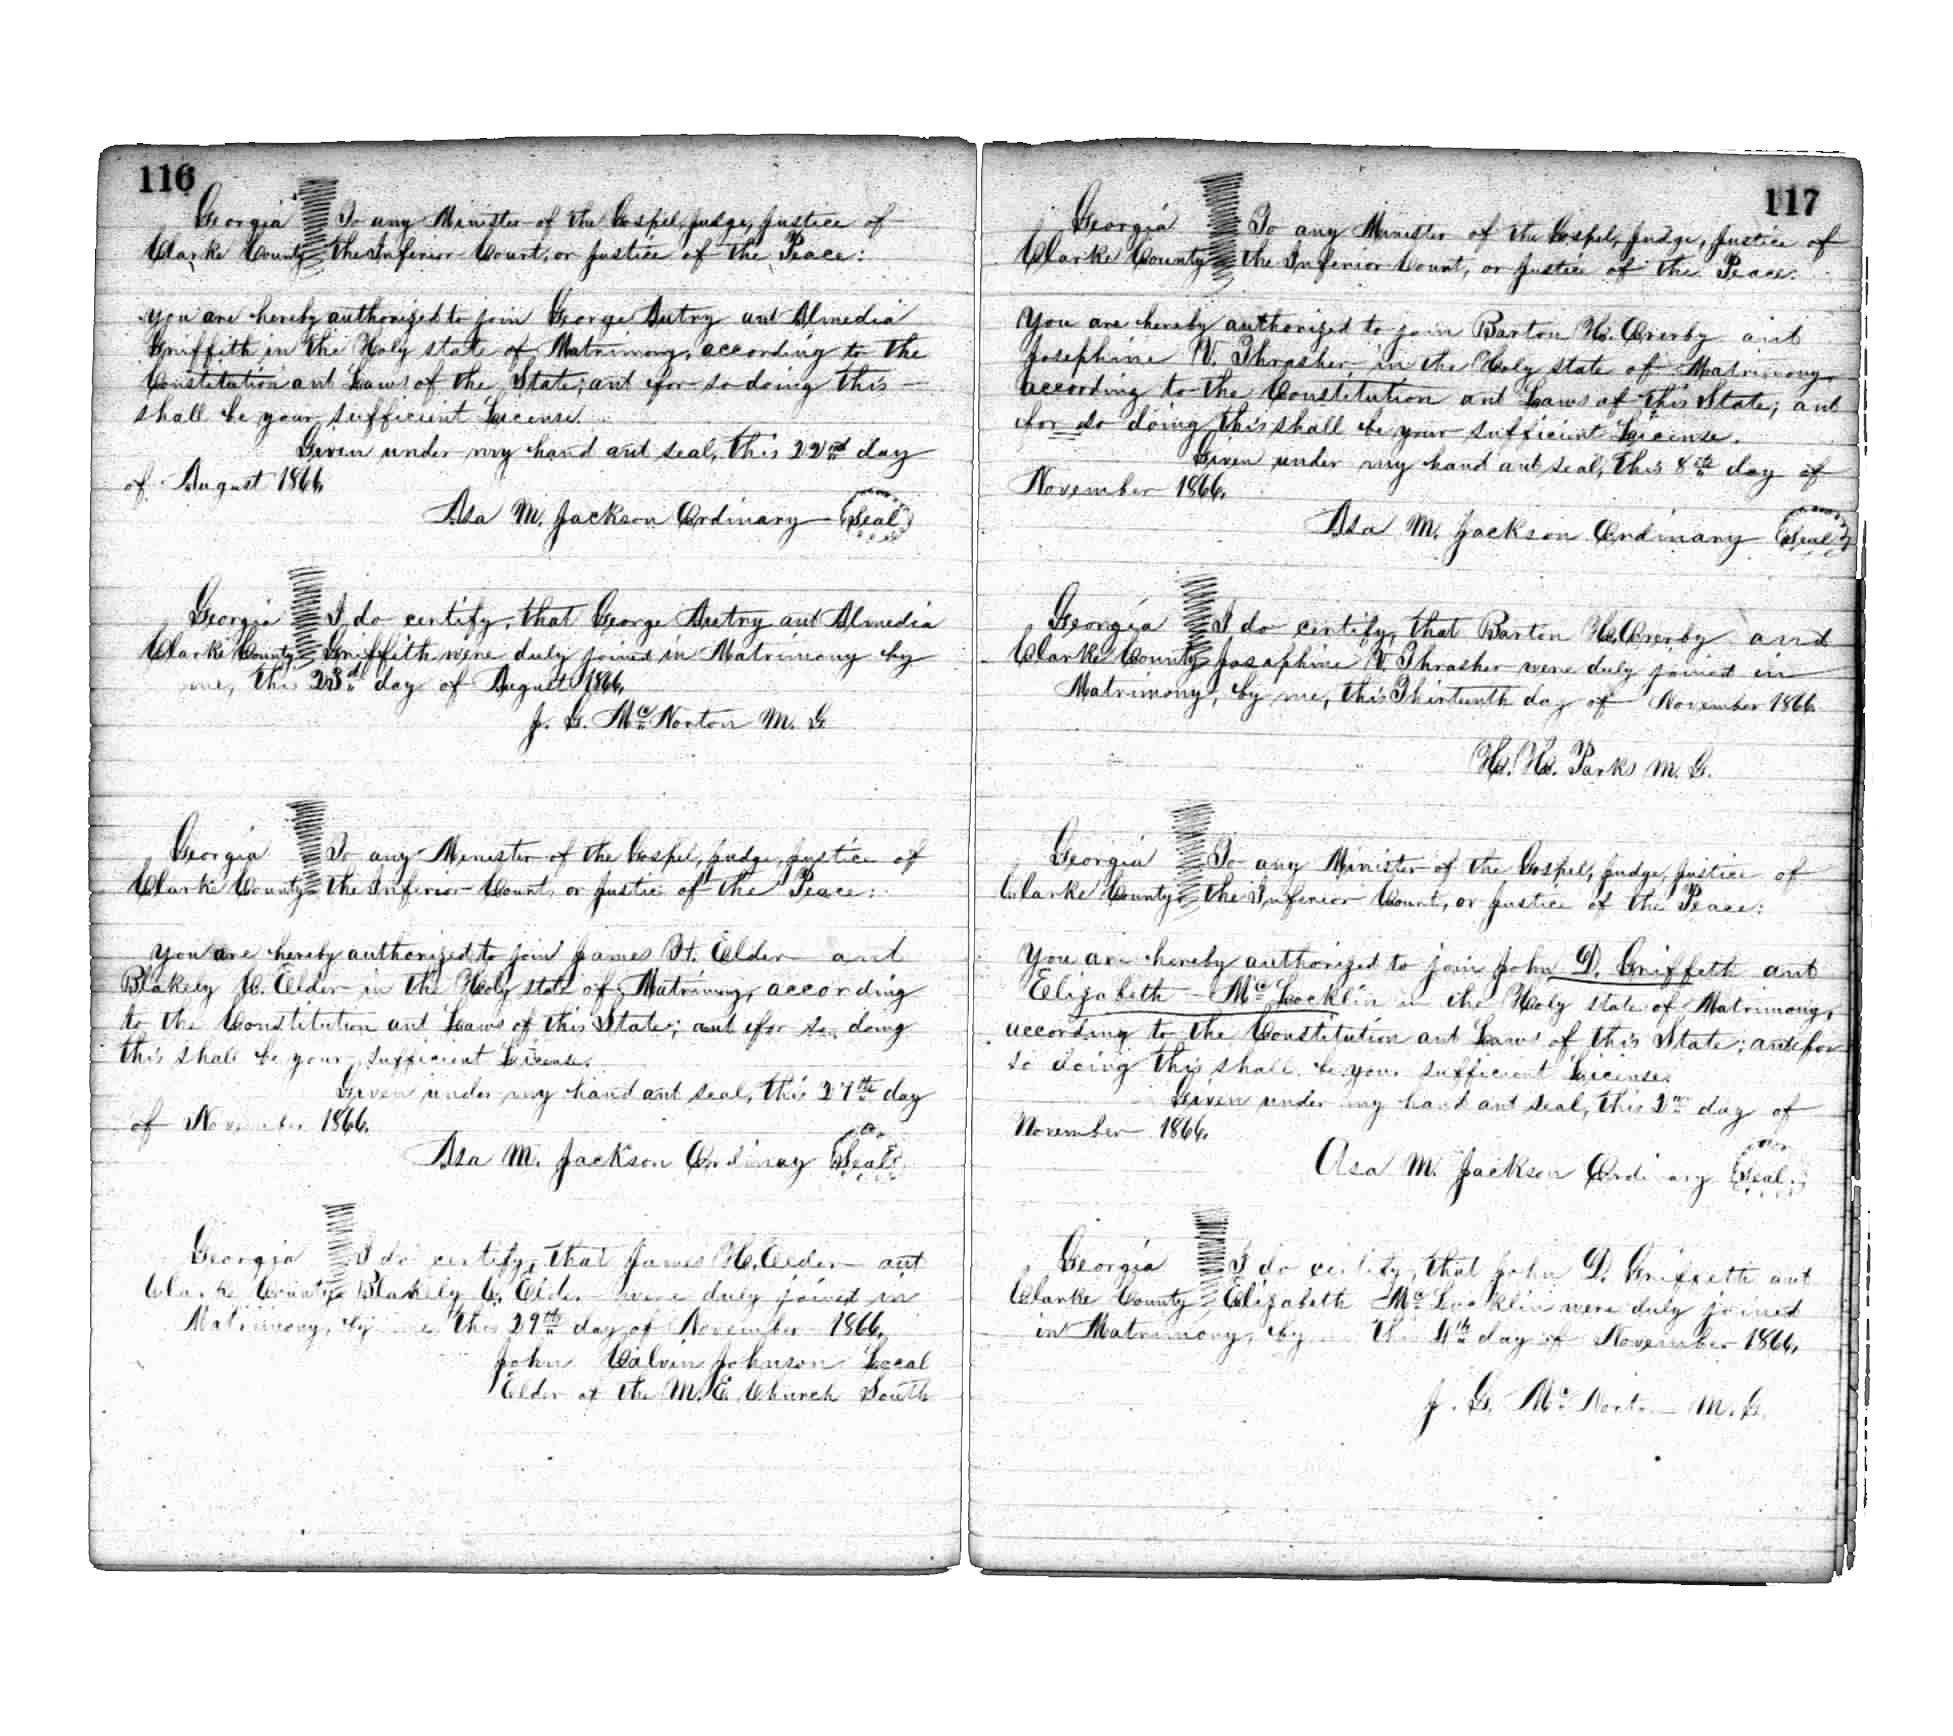 116
Georgia To any Minister of the Gospel, Judge, Justice of
Clarke County the Inferior Court, or Justice of the Peace:
You are hereby authorized to join George Autry and Almedia
Griffith in the Holy state of Matrimony, according to the
Constitution and Laws of the State; and for so doing this
shall be your sufficient License.
Given under my hand and seal, this 22nd day
of August 1866.
Asa M. Jackson Ordinary Seal
Georgia I do certify, that George Autry and Almedia
Clarke County Griffith were duly joined in Matrimony by
me, this 23d day of August 1866.
J. G. McNorton M. G
Georgia To any Minister of the Gospel, Judge, Justice of
Clarke County the Inferior Court, or Justice of the Peace:
You are hereby authorized to join James H. Elder and
Blakely C. Elder in the Holy state of Matrimony, according
to the Constitution and Laws of this State; and for so doing
this shall be your sufficient License.
Given under my hand and seal, this 27th day
of November 1866.
Asa M. Jackson Ordinary Seal
Georgia I do certify, that James H. Elder and
Clarke County Blakely C. Elder were duly joined in
Matrimony, by me, this 29th day of November 1866.
John Calvin Johnson Local
Elder of the M. E. Church South
117
Georgia To any Minister of the Gospel, Judge, Justice of
Clarke County the Inferior Court, or Justice of the Peace:
You are hereby authorized to join Barton H. Overby and
Josephine V. Thrasher, in the Holy state of Matrimony
according to the Constitution and Laws of this State; and
for so doing this shall be your sufficient License.
Given under my hand and seal, this 8th day of
November 1866.
Asa M. Jackson Ordinary Seal
Georgia I do certify, that Barton H. Overby and
Clarke County Josephine V. Thrasher were duly joined in
Matrimony, by me, this Thirteenth day of November 1866
H. H. Parks M. G.
Georgia To any Minister of the Gospel, Judge, Justice of
Clarke County the Inferior Court, or Justice of the Peace:
You are hereby authorized to join John D. Griffeth and
Elizabeth McLocklin in the Holy state of Matrimony,
according to the Constitution and Laws of this State; and for
so doing this shall be your sufficient License.
Given under my hand and seal, this 2nd day of
November 1866.
Asa M. Jackson Ordinary Seal
Georgia I do certify, that John D. Griffeth and
Clarke County Elizabeth McLocklin were duly joined
in Matrimony, by this 4th day of November 1866.
J. G. McNorton M. G.